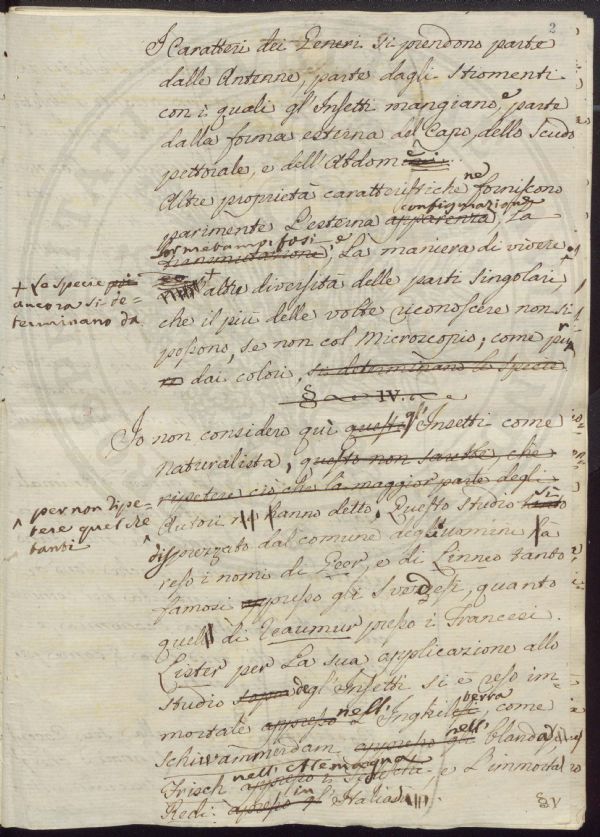 2
I Caratteri dei Generi si prendono parte
dalle Antenne, parte dagli stromenti
con i quali gl'Insetti mangiano, e parte
dalla forma esterna del Capo, dello Scudo
pettorale, e dell'Abdom
Altre proprietà caratteristiche ne forniscono
configurazione
parimente L'esterna apparenza, La
La maniera di vivere
+ Le specie poi
ancora si de-
terminano da
altre diversità delle parti singolari
che il più delle volte riconoscere non si
possono, se non col Microscopio, come
dai colori, si determinano le specie
§ IV.
Io non considero quì questi gl'Insetti come
Naturalista, questo non sarebbe, che
ripetere ciò che la maggior parte degli
per non ripe-
tere quel che
tanti
Autori hanno detto. Questo studio sì
disprezzato dal comune degli uomini ha
reso i nomi di Geer, e di Linneo tanto
famosi appresso gli Svedesi, quanto
quel di Reaumur presso i Francesi.
Lister per La sua applicazione allo
studio sopra degl'Insetti si è reso im-
mortale appresso nell' Inghilterra, come
Schwammerdam appresso gli nell' Olanda,
Frisch nell'Alemagna e L'immortal
Redi in Italia
§ V